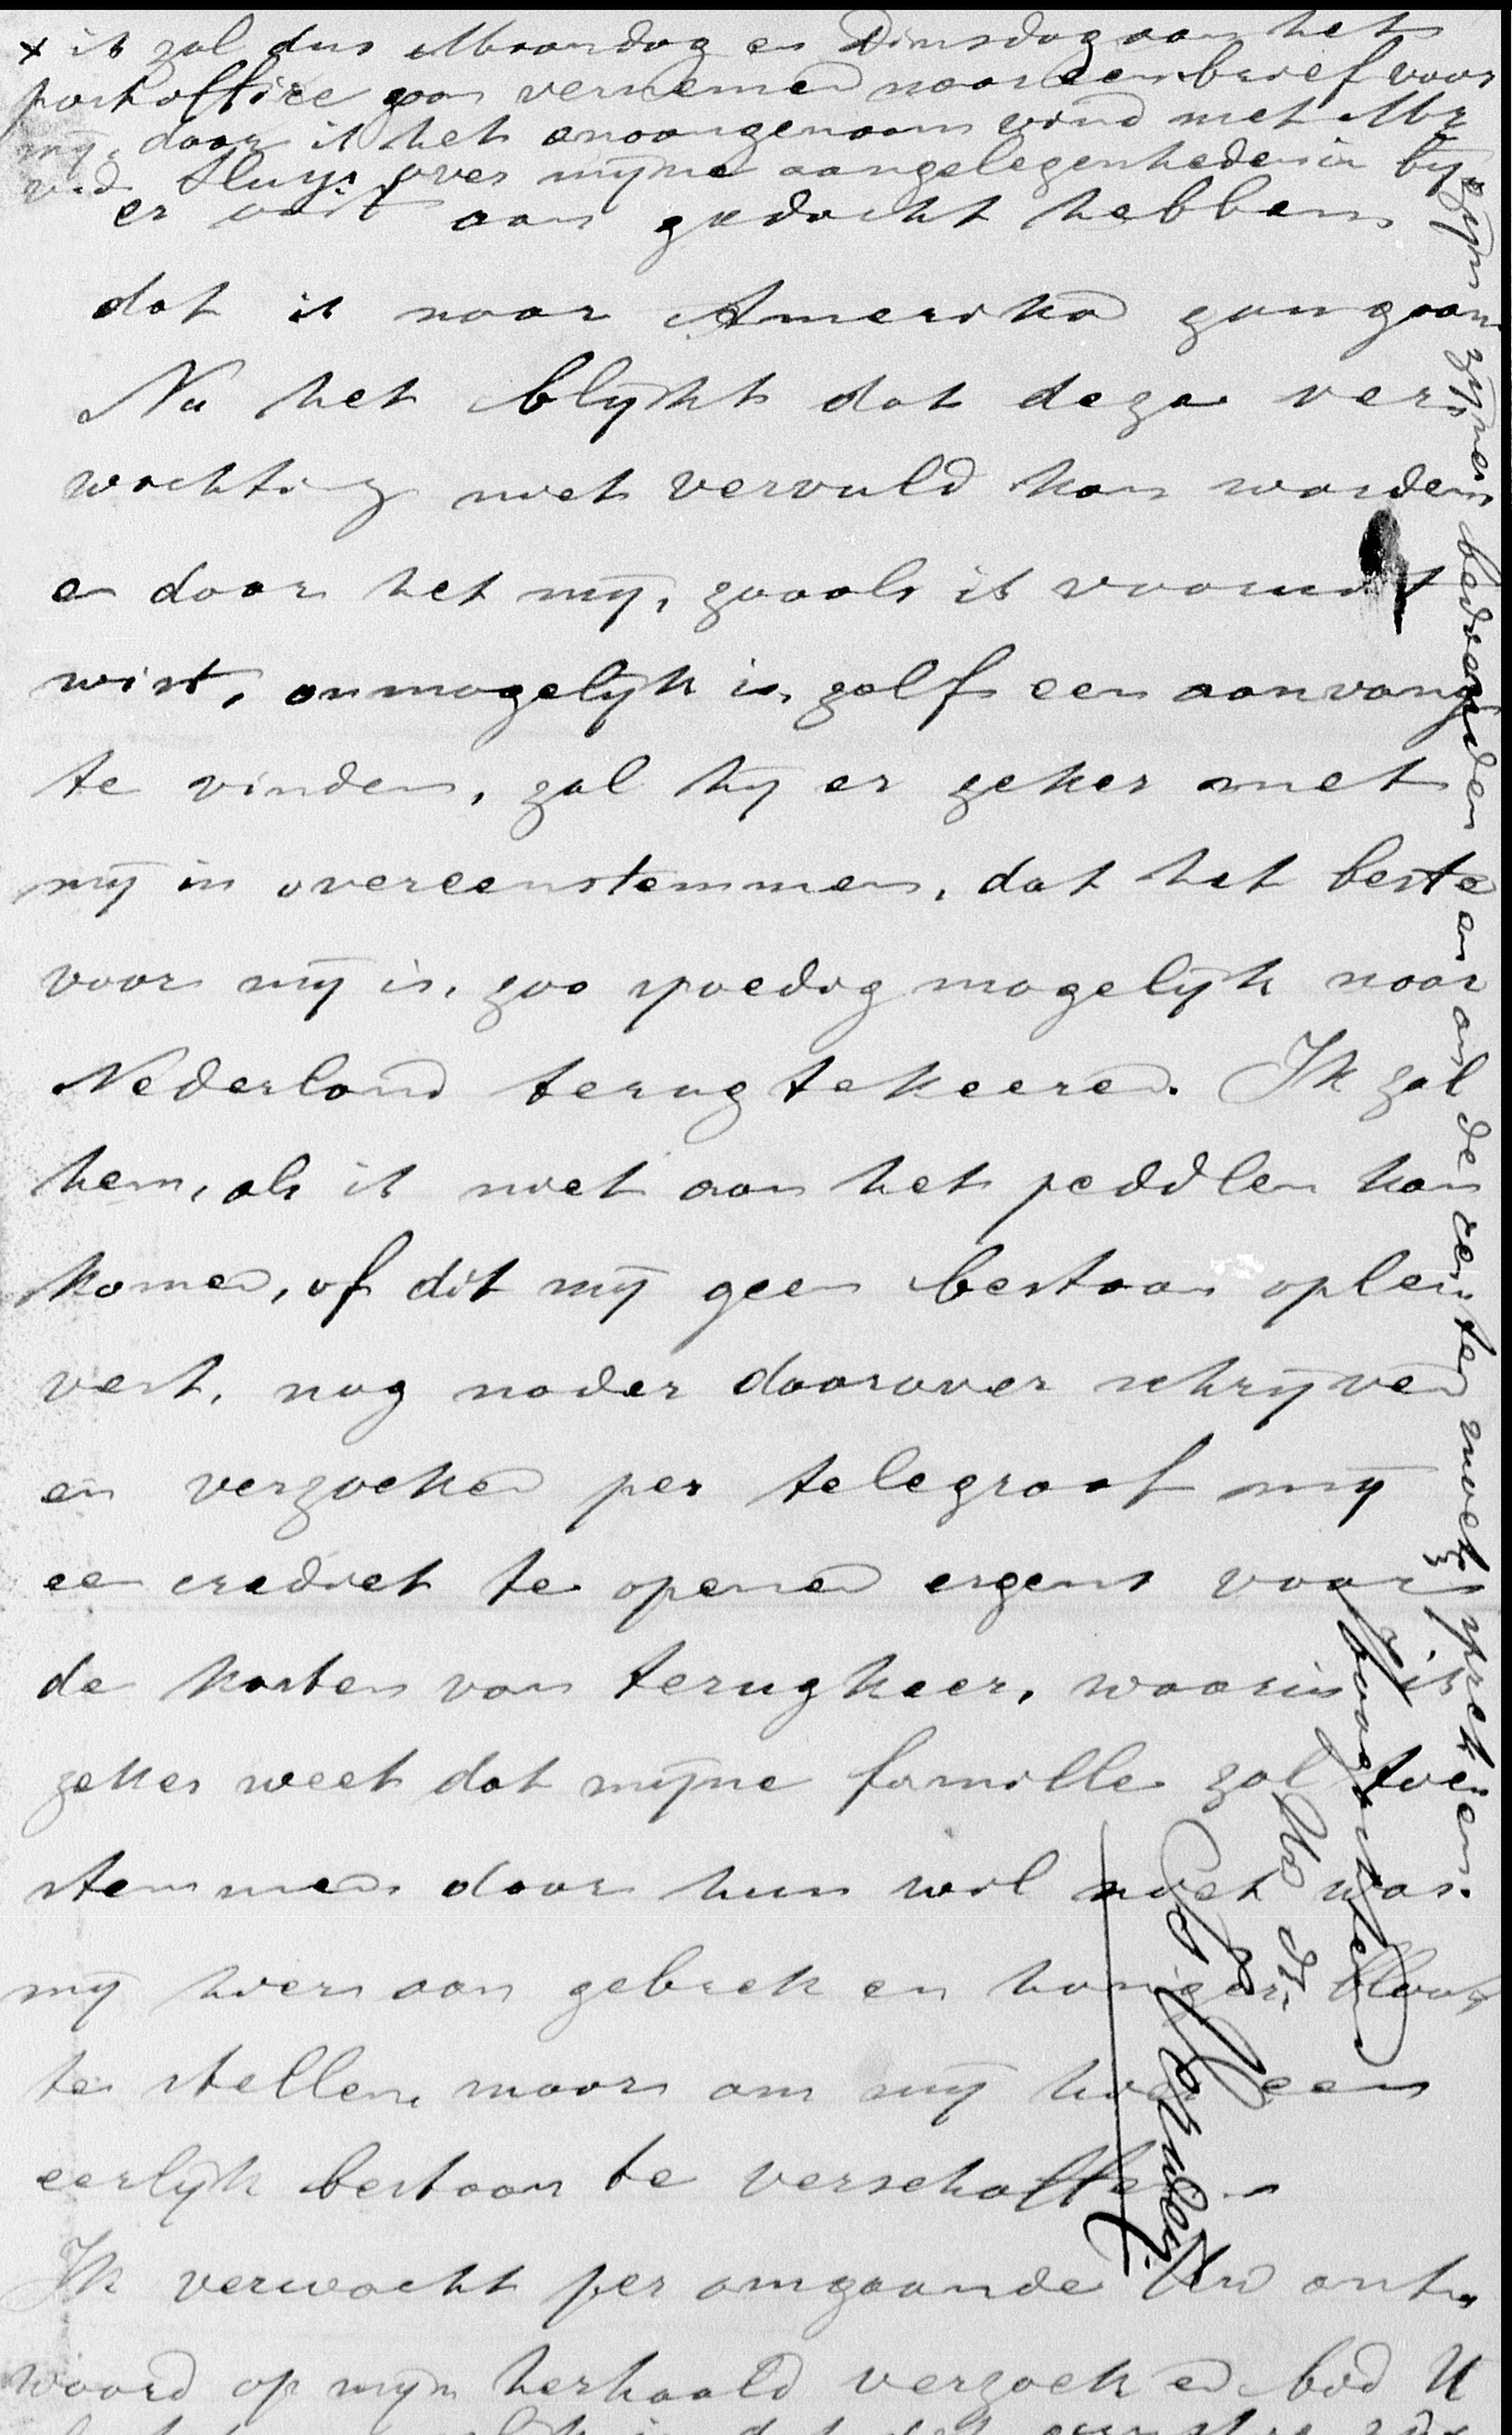 x ik zal dus Maandag en Dinsdag aan het
postoffice gaan vernemen naar een brief voor
mij, daar ik het onaangenaam vind met Mr
v.d. Sluys over mijne aangelegenheden in bij-
er ooit aan gedacht hebben
dat ik naar Amerika zou gaan
Nu het blijkt dat deze ver
wachting niet vervuld kan worden
en daar het mij, zooals ik vooruit
wist, onmogelijk is, zelfs een aanvang
te vinden, zal hij er zeker met
mij in overeenstemmen, dat het beste
voor mij is, zoo spoedig mogelijk naar
Nederland terug te keeren. Ik zal
hem, als ik niet aan het peddlen kan
komen, of dit mij geen bestaan ople
vert, nog nader daarover schrijven
en verzoeken per telegraaf mij
een crediet te openen ergens voor
de kosten van terugkeer, waarin ik
zeker weet dat mijne famille zal toe
stemmen daar hun wil niet was
mij hier aan gebrek en honger bloot
te stellen, maar om mij hier een
eerlijk bestaan te verschaffen
Ik verwacht per omgaande Uw ant
woord op mijn herhaald verzoek en bid U
zijn zijner bedienden en aan de
moet spreken
Hoogachtend
Uw dr.